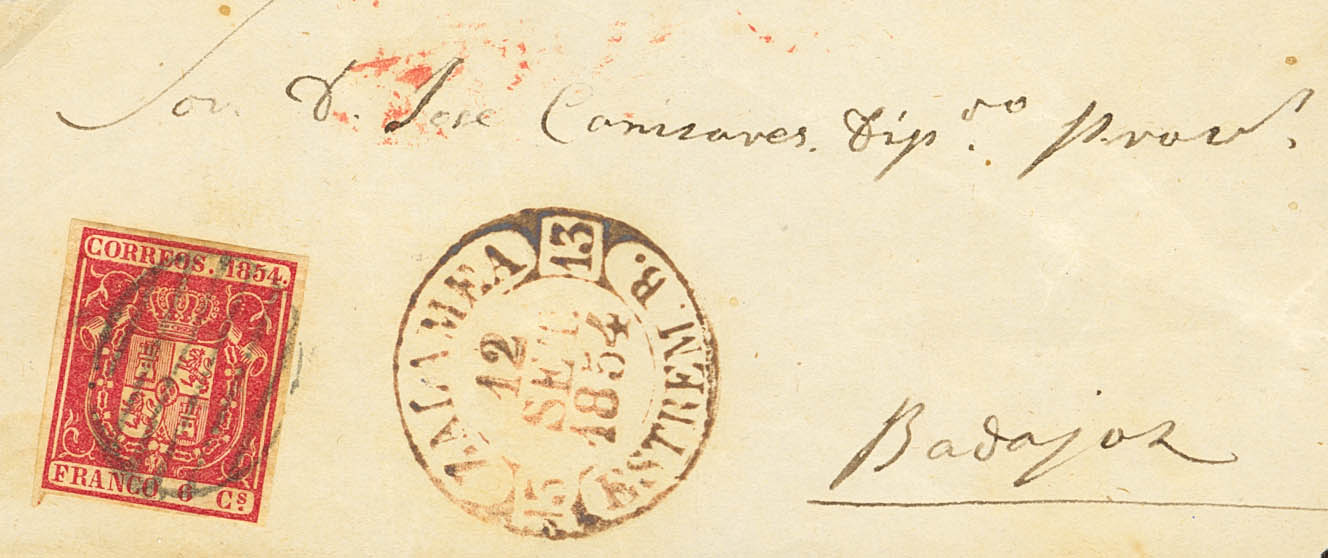 Sor. D. Jose Dip.do Prov.l
CORREOS. 1854.
FRANCO. 6 Cs.
ZALAMEA
13
ESTREM. B.
12
SET.
1854
13
Badajoz